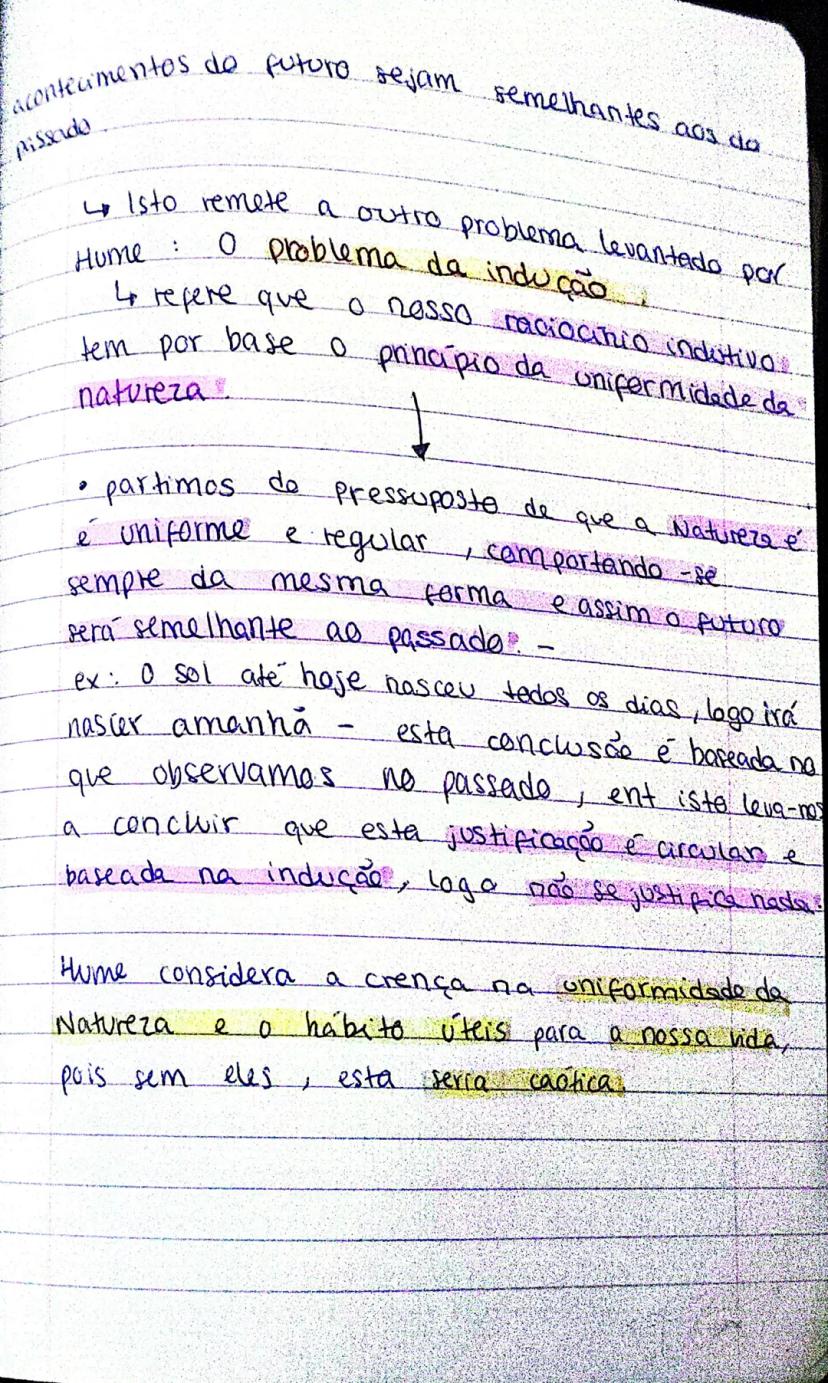 acontecimentos do futuro sejam semelhantes aos do
passado.
↳ Isto remete a outro problema levantado por
Hume : O problema da indução.
↳ refere que o nosso raciocínio indutivo
tem por base o princípio da uniformidade da
natureza.
• partimos do pressuposto de que a Natureza é
é uniforme e regular , comportando -se
sempre da mesma forma e assim o futuro
será semelhante ao passado. -
ex: O sol até hoje nasceu todos os dias, logo irá
nascer amanhã - esta conclusão é baseada no
que observamos no passado , ent isto leva-nos
a concluir que esta justificação é circular e
baseada na indução, logo não se justifica nada.
Hume considera a crença na uniformidade da
Natureza e o hábito úteis para a nossa vida,
pois sem eles , esta seria caótica.